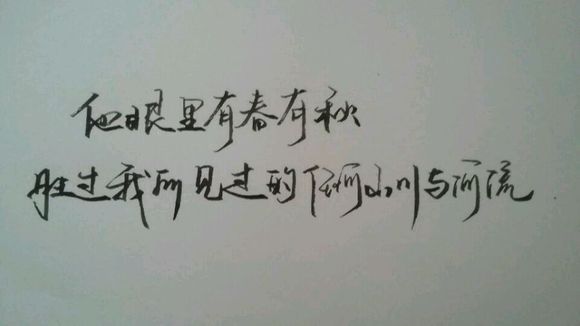 他眼里有春有秋
胜过我所见过的任何山川与河流